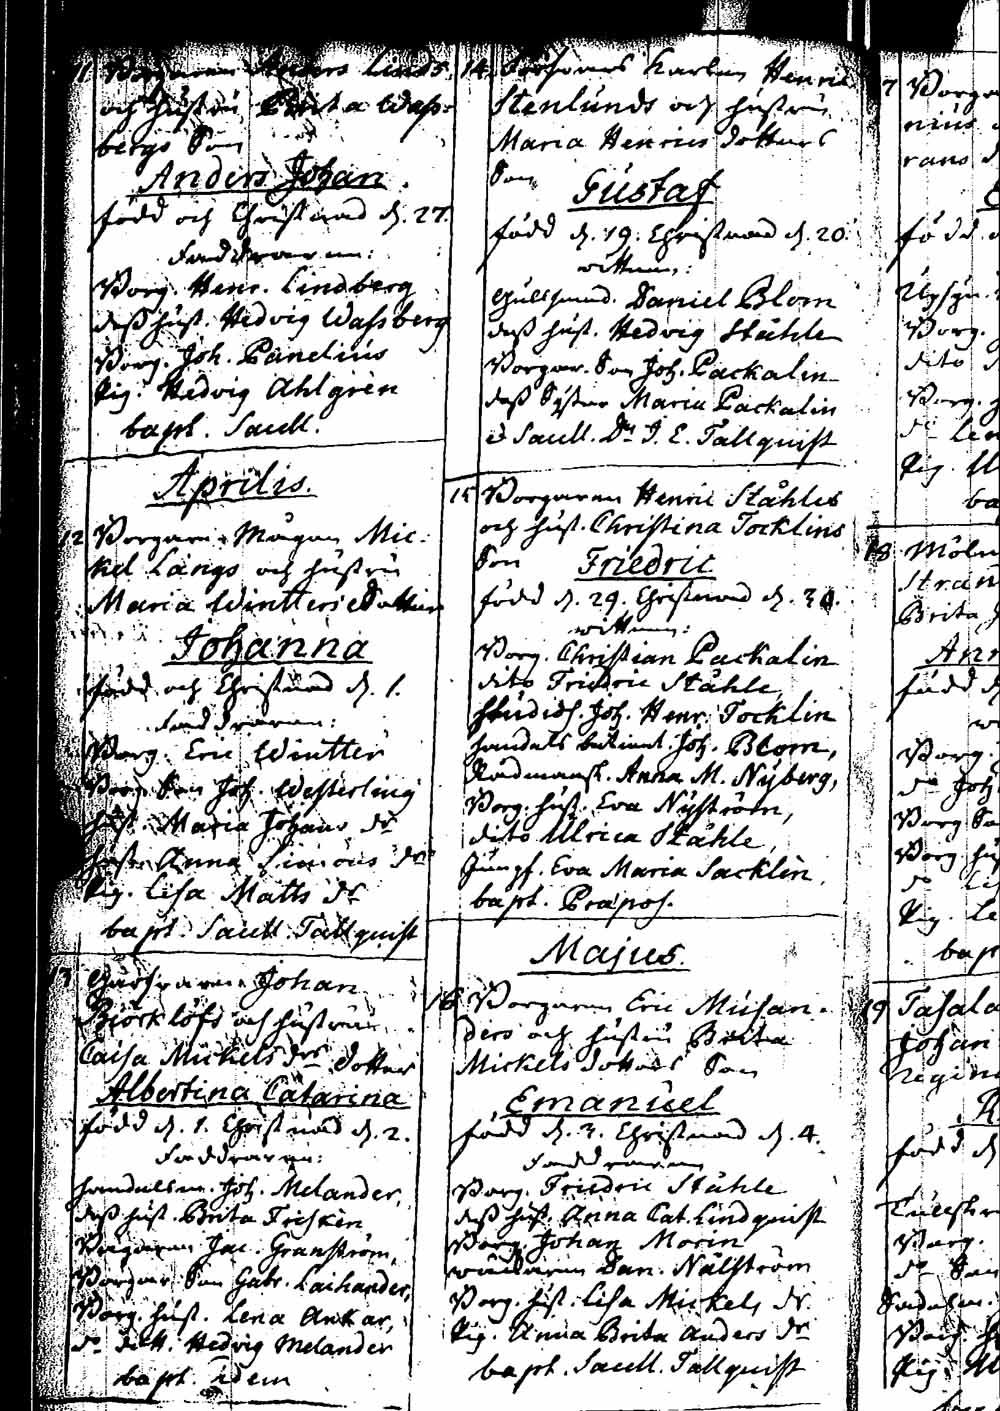 11 Borgaren Anders Lindb.
och hustru Brita Wass-
bergs Son
Anders Johan.
född och Christnad d. 27.
Faddrarne:
Borg. Henr. Lindberg
dess hust. Hedvig Wassberg
Borg. Joh. Panelius
Pig. Hedvig Ahlgrèn
bapt. Sacell.
Aprilis.
12 Borgare Mågen Mic-
kel Långs och hustru
Maria Wintters Dotter
Johanna
född och Christnad d. 1.
Faddrarne:
Borg. Eric Wintter
Borg. Son Joh. Westerling
hust. Maria Johans dr
hust. Anna Simons dr
Pig. Lisa Matts dr
bapt. Sacell. Tallquist
13 Johan
Björklöfs och hustrus
Caisa Mickels drs Dotter
Albertina Catarina
född d. 1. Christnad d. 2.
Faddrarne:
Handelsm. Joh. Melander,
dess hust. Brita Friskèn
Borgaren Jac. Granström,
Borgar Son Gabr. Laihander,
Borg. hust. Lena Ankar,
do dott. Hedvig Melander
bapt. idem
14 Försvars Karlen Henric
Stenlunds och hustru
Maria Henrics dotters
Son
Gustaf
född d. 19. Christnad d. 20.
wittnen:
Gullsmed. Daniel Blom
dess hust. Hedvig Ståhle
Borgar Son Joh. Packalin
dess Syster Maria Packalin
Sacell. Dn J. E. Tallquist
15 Borgaren Henric Ståhles
och hust. Christina Tocklins
Son Friedric
född d. 29. Christnad d. 30.
wittnen:
Borg. Christian Packalin
dito Friedric Ståhle,
Studios. Joh. Henr. Tocklin
handels betient. Joh. Blom,
Rådmansk. Anna M. Nyberg,
Borg. hust. Eva Nyström,
dito Ulrica Ståhle,
Jungf. Eva Maria Sacklèn,
bapt. Præpos.
Majus.
16 Borgaren Eric Musan-
ders och hustru Brita
Mickels dotters Son
Emanuel
född d. 3. Christnad d. 4.
Faddrarne
Borg. Friedric Ståhle
dess hust. Anna Cat. Lindquist
Borg. Johan Morin
Dan. Nålström
Borg. hust. Lisa Mickels dr.
Pig. Anna Brita Anders dr
bapt. Sacell. Tallquist
7 Borga
född
Borg.
dito
Borg.
do
Pig.
ba
18
Stran
Brita
Ann
född d
Borg.
do Joh
Borg So
Borg hu
do
Pig. Le
bapt
19
Johan
Regin
född d
Borg.
do Son
Borg. h
Pig. M